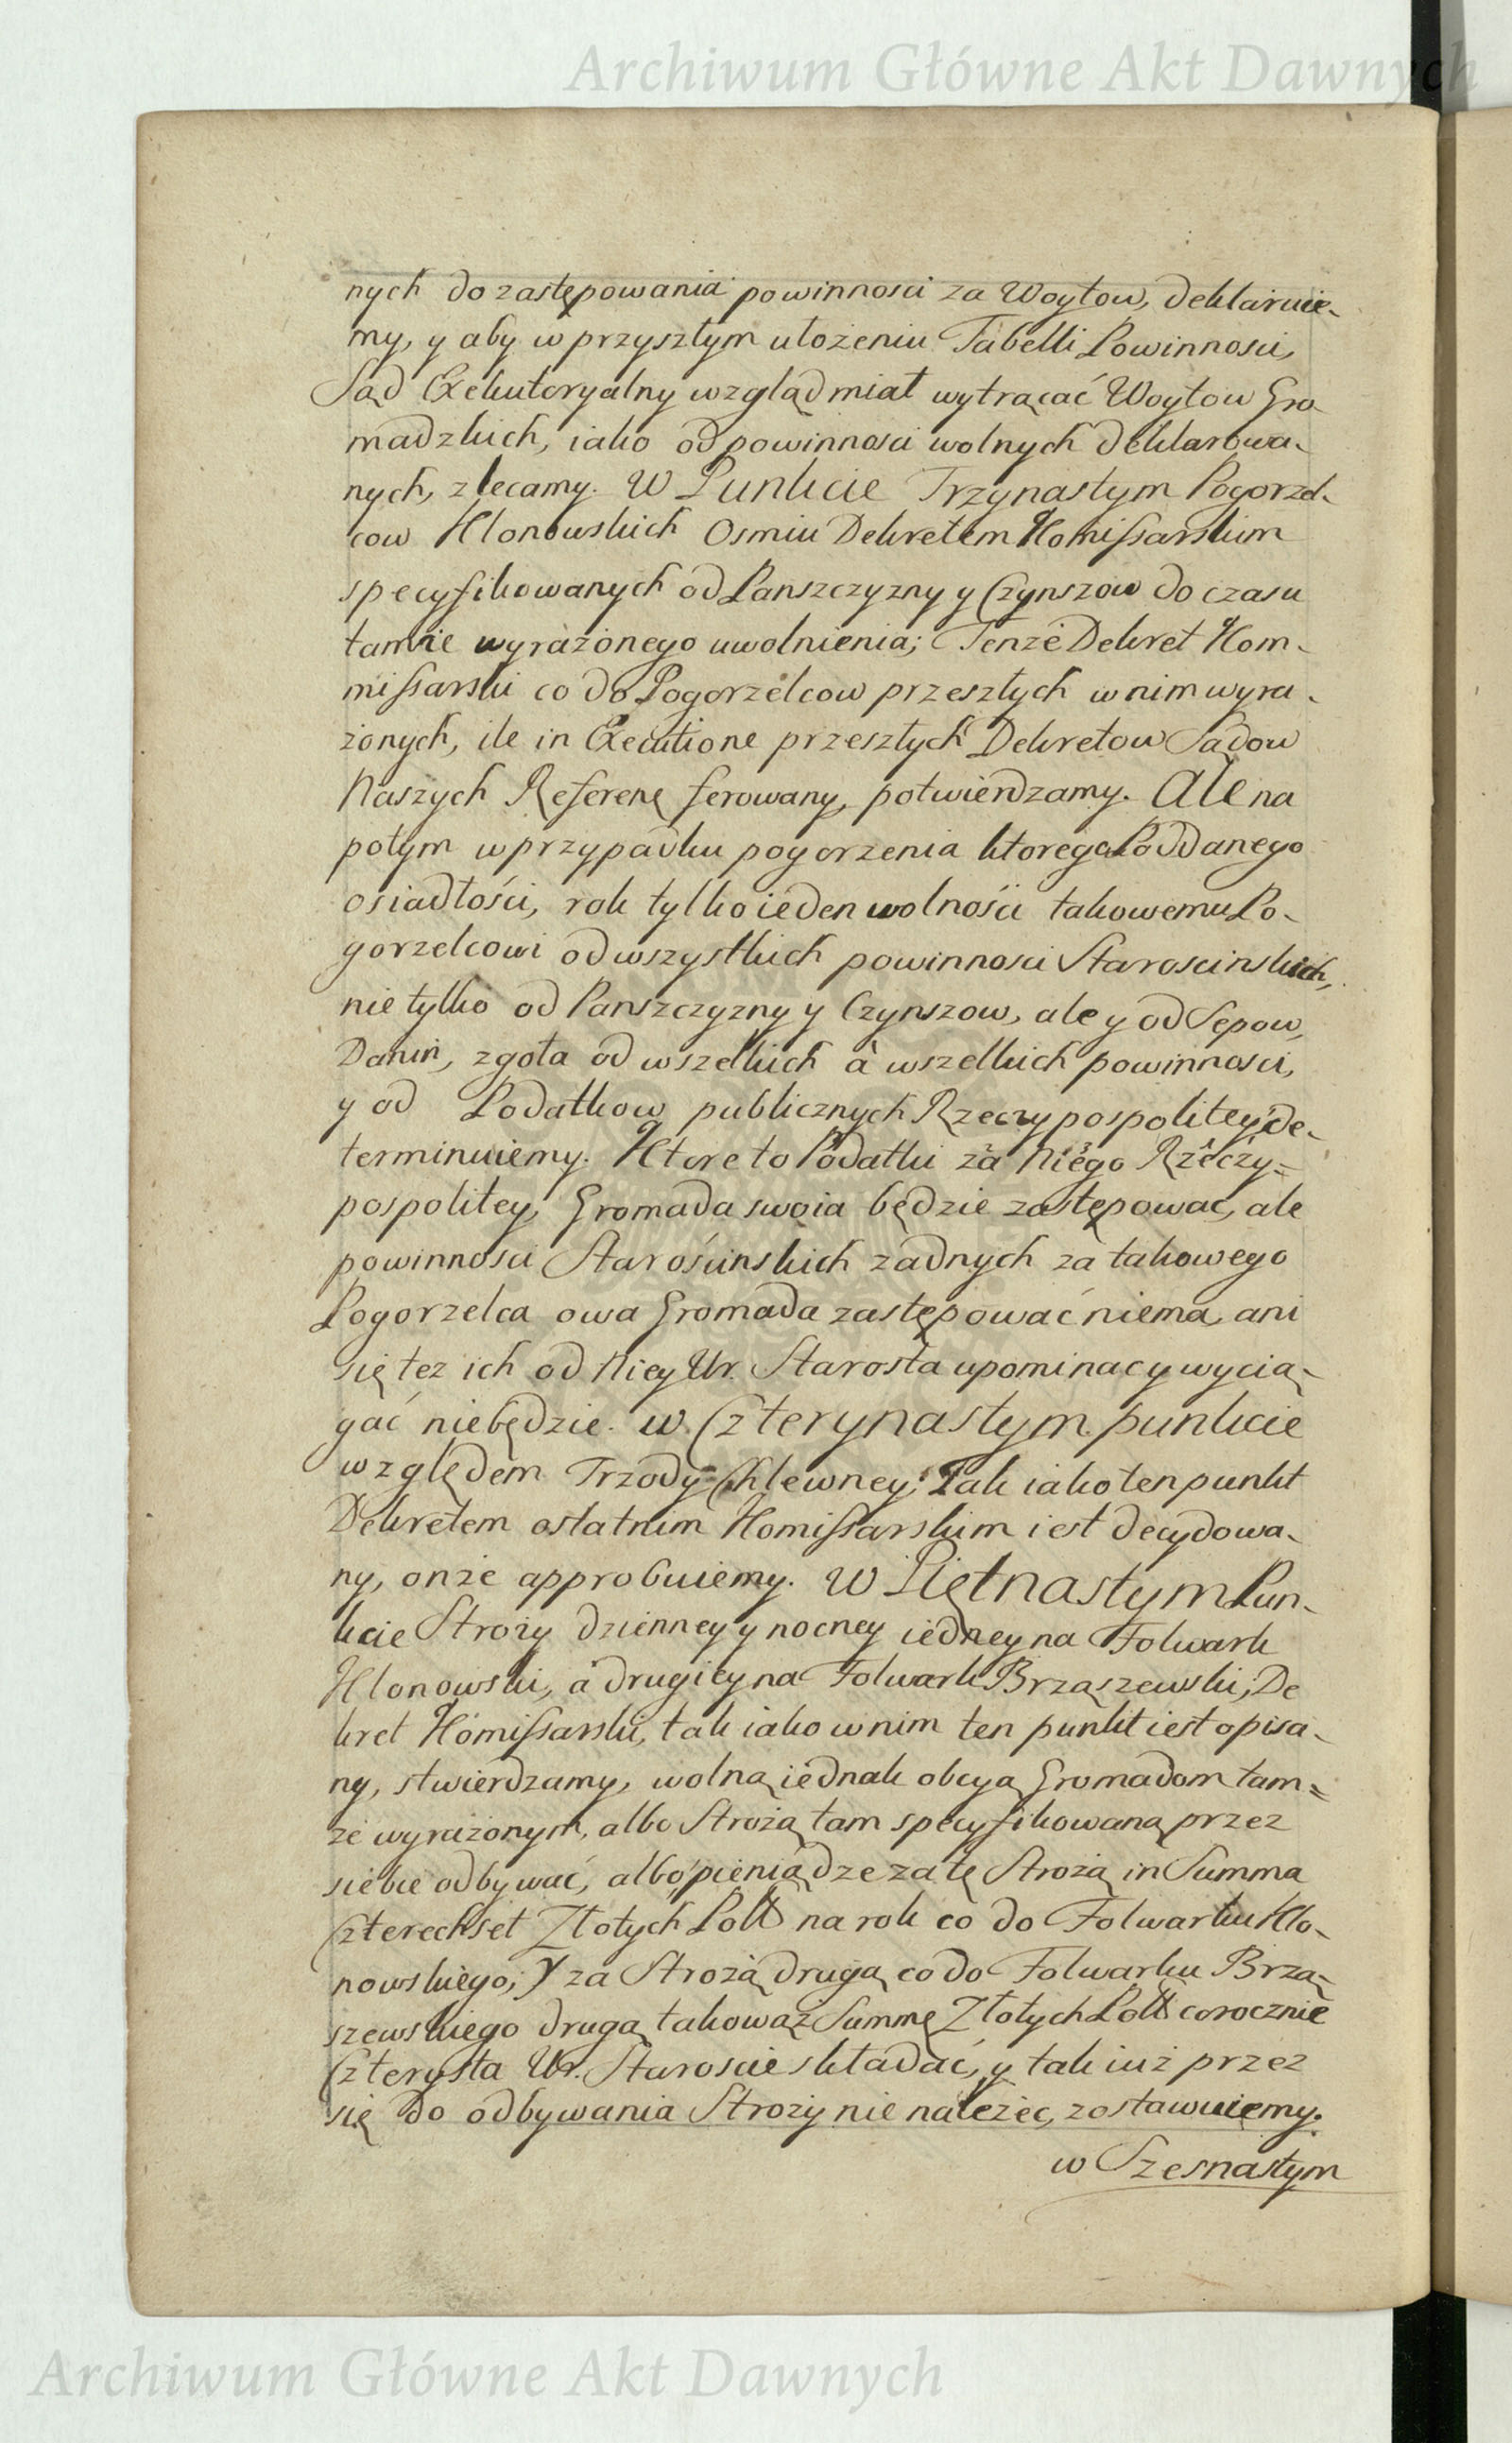 Archiwum Główne Akt Dawnych
nych do zastępowania powinnosci za Woytow, deklaruie-
my, y aby w przyszłym ułożeniu Tabelli Powinnosci,
Sąd Exekutoryalny wzgląd miał wytrącać Woytow Gro-
madzkich, iako od powinnosci wolnych deklarowa-
nych, zlecamy. W Punkcie Trzynastym Pogorzel-
cow Klonowskich Osmiu Dekretem Kommissarskim
specyfikowanych od Panszczyzny y Czynszow do czasu
tamże wyrażonego uwolnienia; Tenże Dekret Kom-
missarski co do Pogorzelcow przeszłych w nim wyra-
żonych, ile in Executione przeszłych Dekretow Sądow
Naszych Referen ferowany, potwierdzamy. Ale na
potym w przypadku pogorzenia ktorego Poddanego
osiadłości, rok tylko ieden wolności takowemu Po-
gorzelcowi od wszystkich powinnosci Staroscinskich,
nie tylko od Panszczyzny y Czynszow, ale y od Sepow,
Danin, zgoła od wszelkich à wszelkich powinnosci,
y od Podatkow publicznych Rzeczypospolitey de-
terminuiemy. Ktore to Podatki za Niego Rzeczy-
pospolitey, Gromada swoia będzie zastępować, ale
powinnosci Starościnskich żadnych za takowego
Pogorzelca owa Gromada zastępować niema, ani
się tez ich od Niey Ur. Starosta upominac y wycią-
gać niebędzie. w Czterynastym punkcie
względem Trzody Chlewney; Tak iako ten punkt
Dekretem ostatnim Komissarskim iest decydowa-
ny, onże approbuiemy. W Piętnastym Pun-
kcie Stroży dzienney y nocney iedney na Folwark
Klonowski, à drugiey na Folwark Brząszewski, De
kret Komissarski, tak iako w nim ten punkt iest opisa-
ny, stwierdzamy, wolną iednak obcyą Gromadom tam-
że wyrażonym, albo Strożą tam specyfikowaną przez
siebie odbywać, albo pieniądze za tę Strożą in Summa
Czterechset Złotych Poll na rok co do Folwarku Klo-
nowskiego; Y za Strożą drugą co do Folwarku Brzą-
szewskiego drugą takowąż Summę Złotych Poll corocznie
Czterysta Ur. Staroscie składać, y tak iuż przez
się do odbywania Stroży nie należec, zostawuiemy.
w Szesnastym
Archiwum Główne Akt Dawnych